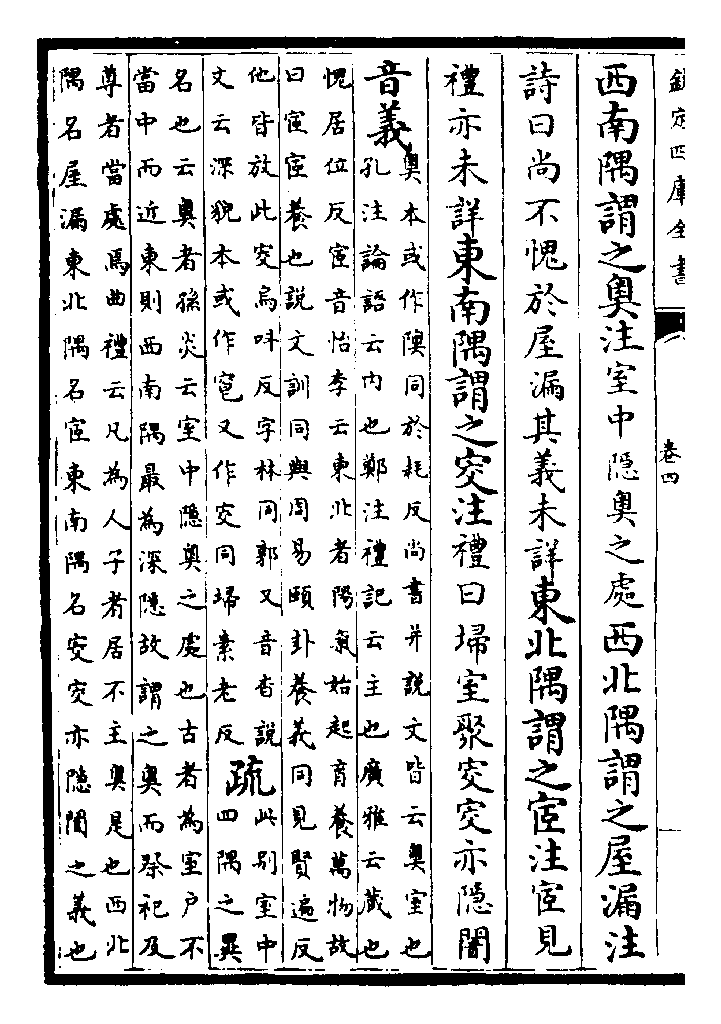 欽定四庫全書
卷四
西南隅謂之奥注室中隱奥之處西北隅謂之屋漏注
詩曰尚不愧於屋漏其義未詳東北隅謂之宧注宧見
禮亦未詳東南隅謂之窔注禮曰埽室聚窔窔亦隱闇
音義奥本或作隩同於耗反尚書并說文皆云奥室也
孔注論語云内也鄭注禮記云主也廣雅云藏也
愧居位反宧音怡李云東北者陽氣始起育養萬物故
曰宧宧養也說文訓同與周易頤卦養義同見賢遍反
他皆放此窔烏叫反字林同郭又音杳說
文云深貌本或作窅又作窔同埽素老反
疏此别室中
四隅之異
名也云奥者孫炎云室中隱奥之處也古者為室户不
當中而近東則西南隅最為深隱故謂之奥而祭祀及
尊者當處焉曲禮云凡為人子者居不主奥是也西北
隅名屋漏東北隅名宧東南隅名窔窔亦隱闇之義也